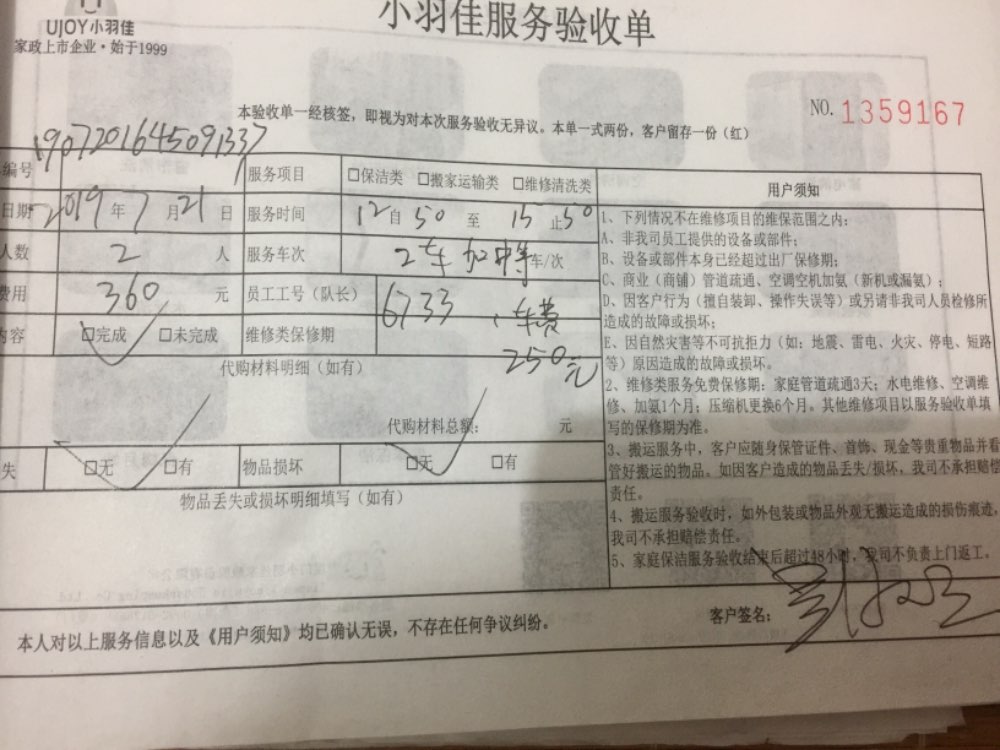 小羽佳服务验收单
UJOY小羽佳
家政上市企业·始于1999
本验收单一经核签，即视为对本次服务验收无异议。本单一式两份，客户留存一份（红）
NO. 1359167
编号 1907201645091337 服务项目 □保洁类 □搬家运输类 □维修清洗类
日期 2019 年 7 月 21 日 服务时间 12 自 50 至 15 止 50
人数 2 人 服务车次 2车 加 车/次
费用 360 元 员工工号（队长） 6733
内容 □完成 □未完成 维修类保修期
车费
250元
代购材料明细（如有）
代购材料总额： 元
失 □无 □有 物品损坏 □无 □有
物品丢失或损坏明细填写（如有）
用户须知
1、下列情况不在维修项目的维保范围之内：
A、非我司员工提供的设备或部件；
B、设备或部件本身已经超过出厂保修期；
C、商业（商铺）管道疏通、空调空机加氨（新机或漏氨）；
D、因客户行为（擅自装卸、操作失误等）或另请非我司人员检修所
造成的故障或损坏；
E、因自然灾害等不可抗拒力（如：地震、雷电、火灾、停电、短路
等）原因造成的故障或损坏。
2、维修类服务免费保修期：家庭管道疏通3天；水电维修、空调维
修、加氨1个月；压缩机更换6个月。其他维修项目以服务验收单填
写的保修期为准。
3、搬运服务中，客户应随身保管证件、首饰、现金等贵重物品并看
管好搬运的物品。如因客户造成的物品丢失/损坏，我司不承担赔偿
责任。
4、搬运服务验收时，如外包装或物品外观无搬运造成的损伤痕迹，
我司不承担赔偿责任。
5、家庭保洁服务验收结束后超过48小时，我司不负责上门返工。
客户签名：
本人对以上服务信息以及《用户须知》均已确认无误，不存在任何争议纠纷。